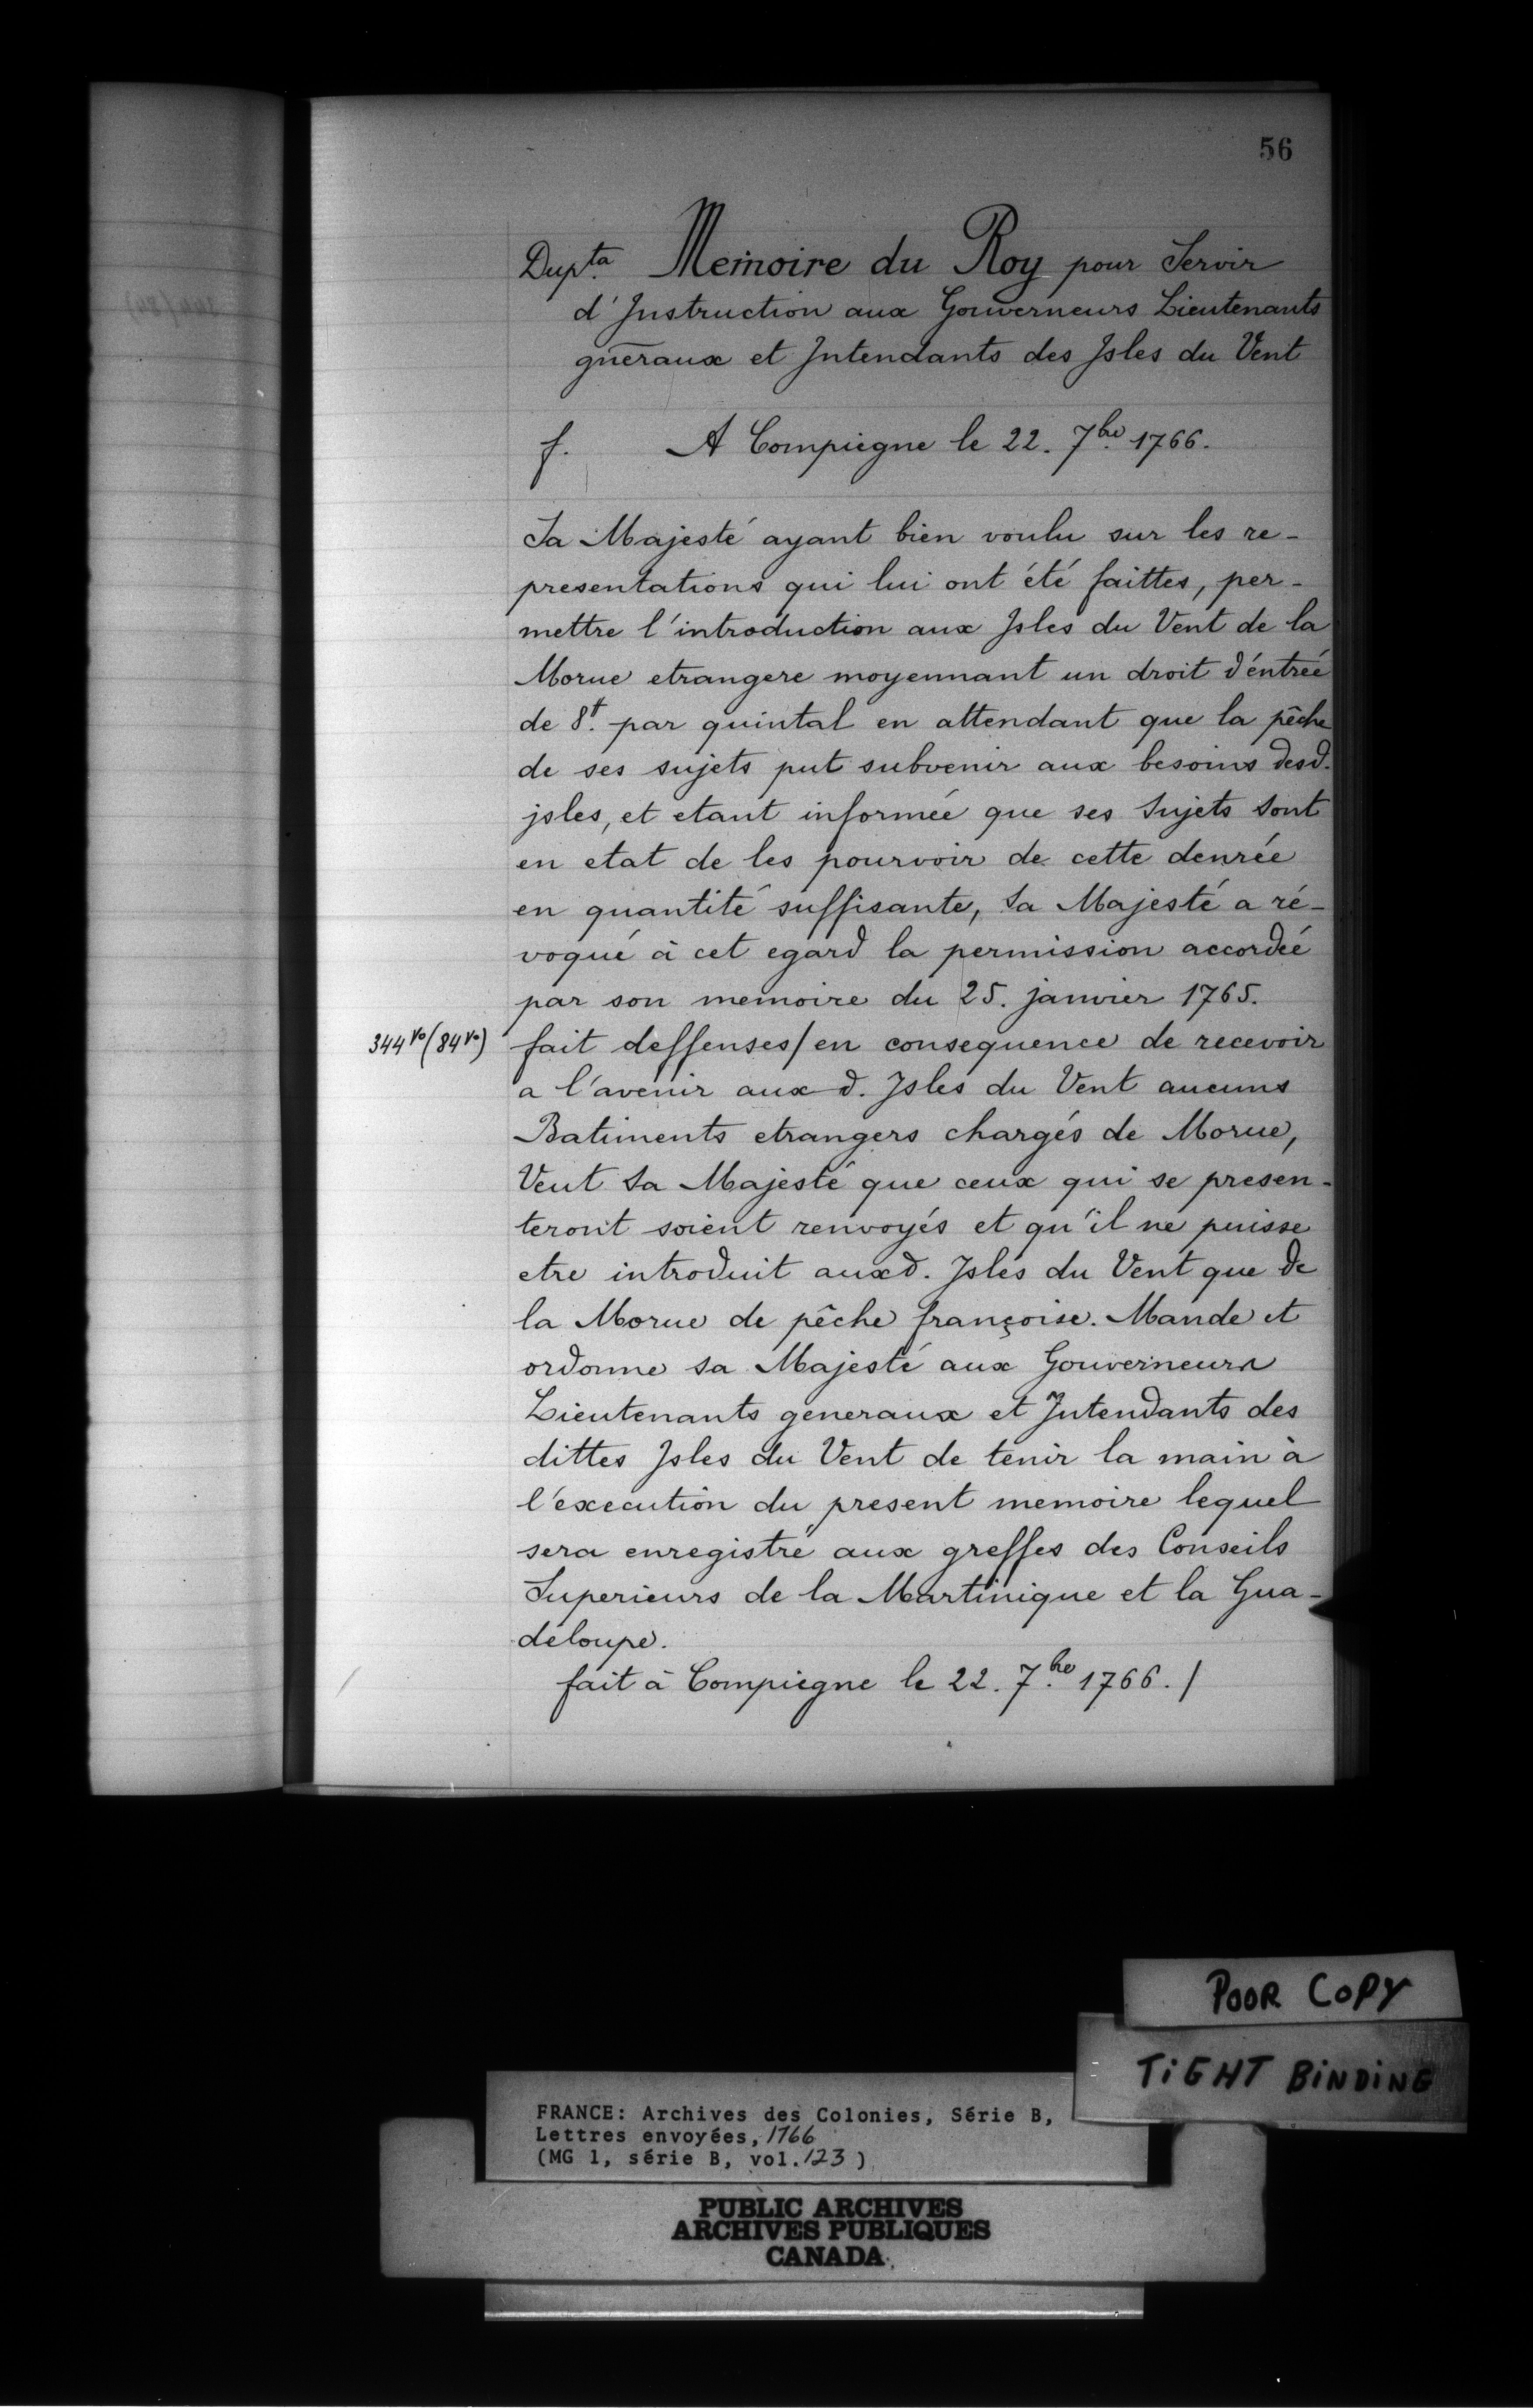 56
Dup.ta Memoire du Roy pour Servir
d'Instruction aux Gouverneurs Lieutenants
gñeraux et Intendants des Isles du Vent
f. A Compiegne le 22. 7bre 1766.
Sa Majesté ayant bien voulu sur les re-
presentations qui lui ont été faittes, per-
mettre l'introduction aux Isles du Vent de la
Morue etrangere moyennant un droit d'éntreé
de 8tt. par quintal en attendant que la pêche
de ses sujets put subvenir aux besoins desd.
jsles, et etant informeé que ses Sujets sont
en etat de les pourvoir de cette denrée
en quantité suffisante, Sa Majesté a ré-
voqué à cet egard la permission accordeé
par son memoire du 25. janvier 1765.
344 vo (84 vo) fait deffenses/en consequence de recevoir
a l'avenir aux d. Isles du Vent aucuns
Batiments etrangers chargés de Morue,
Veut Sa Majesté que ceux qui se presen-
teront soient renvoyés et qu'il ne puisse
etre introduit auxd. Isles du Vent que de
la Morue de pêche françoise. Mande et
ordonne sa Majesté aux Gouverneurs
Lieutenants generaux et Intendants des
dittes Isles du Vent de tenir la main à
l'execution du present memoire lequel
sera enregistré aux greffes des Conseils
Superieurs de la Martinique et la Gua-
deloupe.
fait à Compiegne le 22. 7bre 1766. /
POOR COPY
TiGHT BiNDiNG
FRANCE: Archives des Colonies, Série B,
Lettres envoyées, 1766
(MG 1, série B, vol. 123)
PUBLIC ARCHIVES
ARCHIVES PUBLIQUES
CANADA